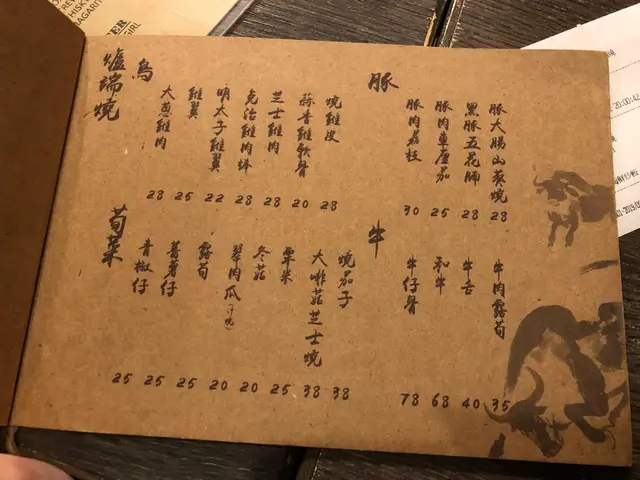 爐端燒
鳥
大蔥雞肉 28
雞翼 25
明太子雞翼 22
免治雞肉棒 28
芝士雞肉 28
蒜香雞軟骨 20
燒雞皮 28
豚
豚肉荔枝 30
豚肉車厘茄 25
黑豚五花腩 28
豚大腸山葵燒 28
荀菜
青椒仔 25
薯仔 25
露荀 25
翠肉瓜 20
冬菇 20
粟米 25
大啡菇芝士燒 38
燒茄子 38
牛
牛仔骨 78
和牛 68
牛舌 40
牛肉露荀 35
WHISKY
GIRL
20:00:42